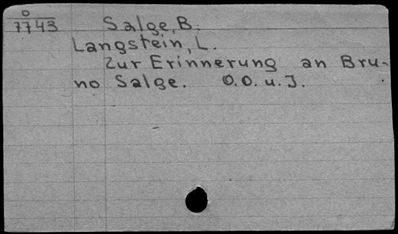 O
7743 Salge, B.
Langstein, L.
Zur Erinnerung an Bru-
no Salge. O.O.u.J.